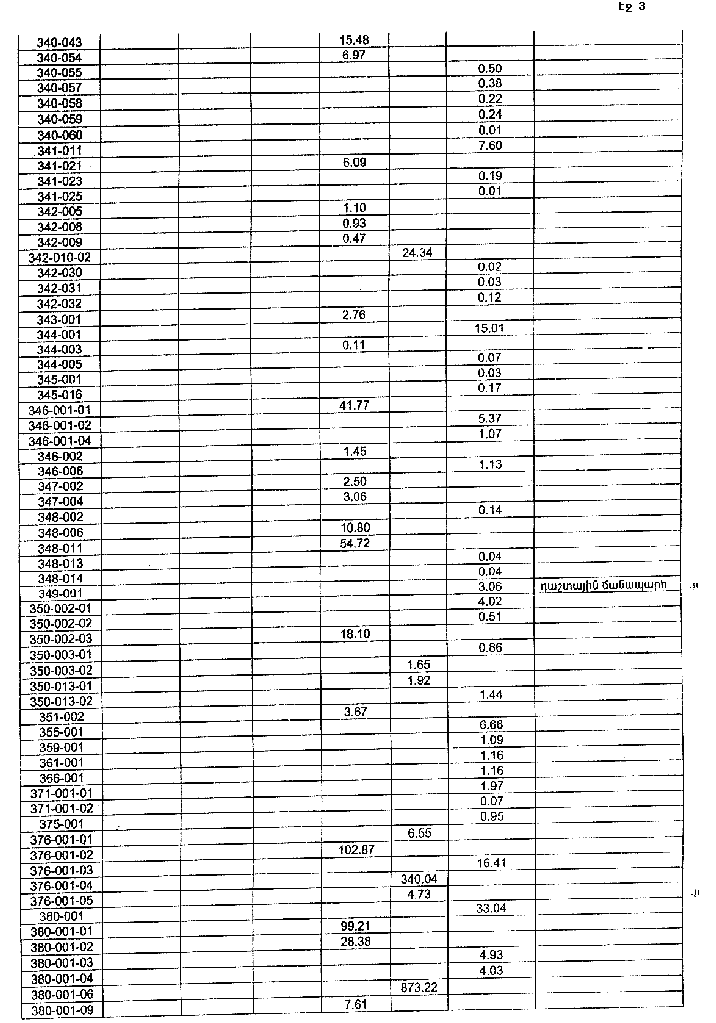 Էջ 3
340-043 15.48
340-054 6.97
340-055 0.50
340-057 0.38
340-058 0.22
340-059 0.24
340-060 0.01
341-011 7.60
341-021 6.09
341-023 0.19
341-025 0.01
342-005 1.10
342-008 0.93
342-009 0.47
342-010-02 24.34
342-030 0.02
342-031 0.03
342-032 0.12
343-001 2.76
344-001 15.01
344-003 0.11
344-005 0.07
345-001 0.03
345-016 0.17
346-001-01 41.77
346-001-02 5.37
346-001-04 1.07
346-002 1.45
346-006 1.13
347-002 2.50
347-004 3.06
348-002 0.14
348-006 10.80
348-011 54.72
348-013 0.04
348-014 0.04
349-001 3.06 դաշտային ճանապարհ
350-002-01 4.02
350-002-02 0.51
350-002-03 18.10
350-003-01 0.86
350-003-02 1.65
350-013-01 1.92
350-013-02 1.44
351-002 3.67
355-001 6.66
359-001 1.09
361-001 1.16
366-001 1.16
371-001-01 1.97
371-001-02 0.07
375-001 0.95
376-001-01 6.55
376-001-02 102.87
376-001-03 16.41
376-001-04 340.04
376-001-05 4.73
380-001 33.04
380-001-01 99.21
380-001-02 28.38
380-001-03 4.93
380-001-04 4.03
380-001-06 873.22
380-001-09 7.61